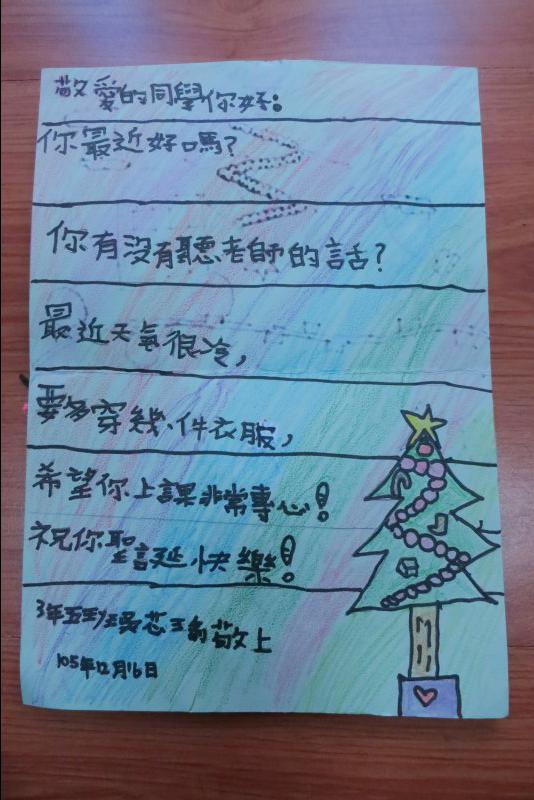 敬愛的同學你好：
你最近好嗎？
你有沒有聽老師的話？
最近天氣很冷，
要多穿幾件衣服，
希望你上課非常專心！
祝你聖誕快樂！
3年五班 芯 敬上
105年12月16日